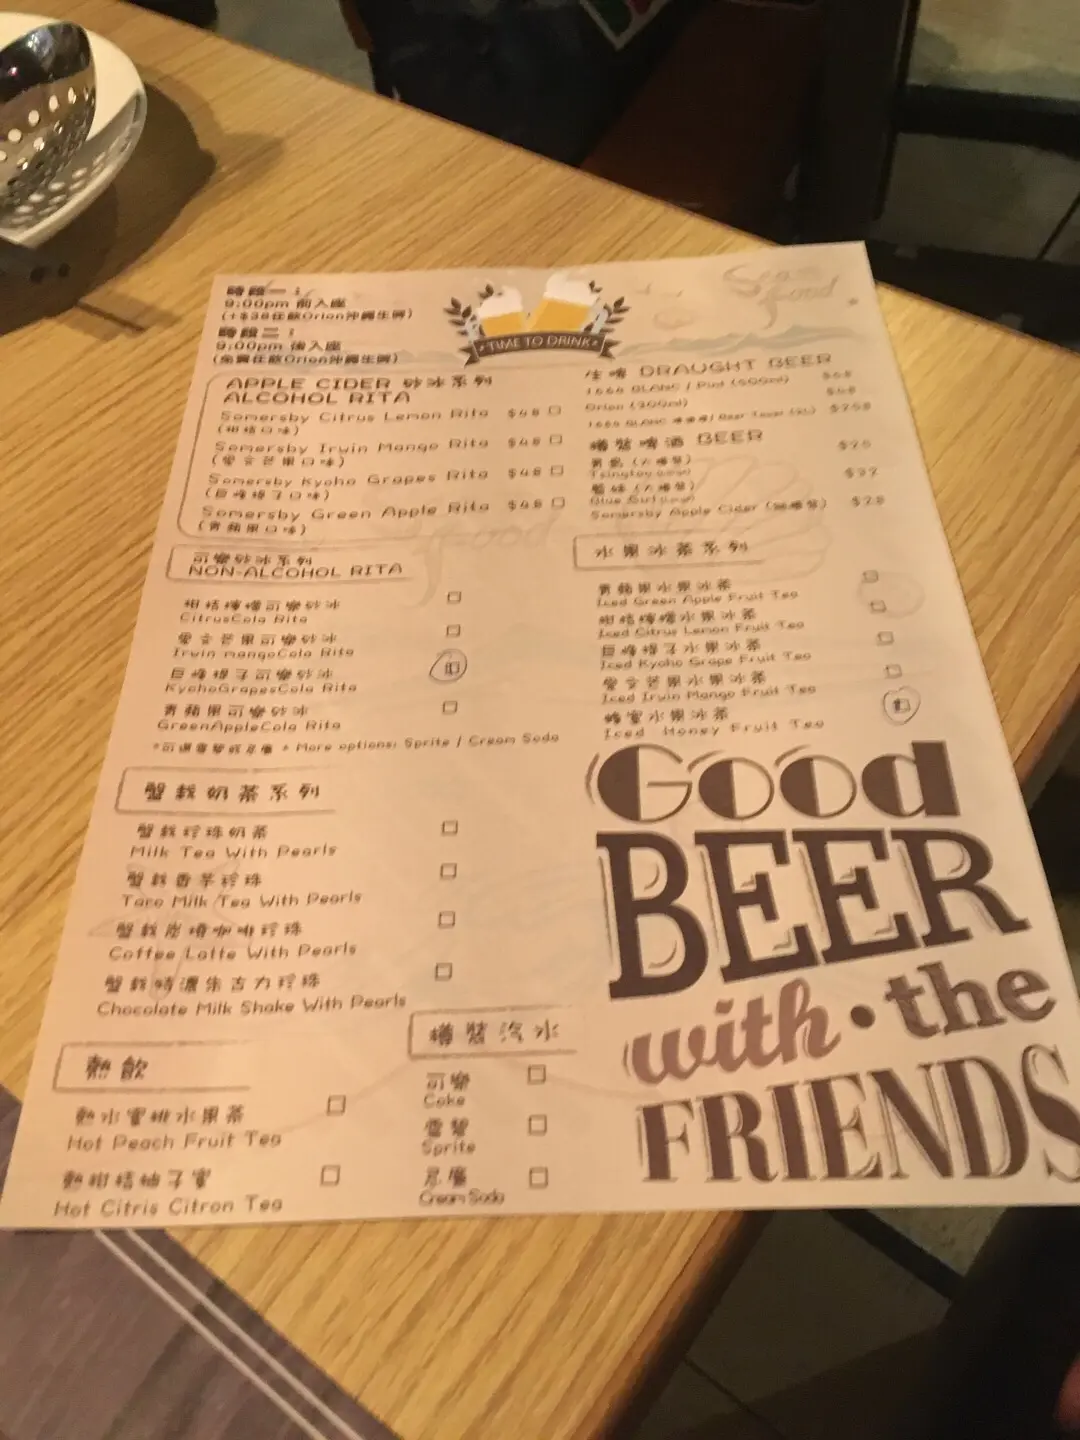 時段一：
9:00pm 前入座
(+$38任飲Orion沖繩生啤)
時段二：
9:00pm 後入座
(免費任飲Orion沖繩生啤)
TIME TO DRINK
Sean
food
APPLE CIDER 砂冰系列
ALCOHOL RITA
Somersby Citrus Lemon Rita $48
(柑桔口味)
Somersby Irwin Mango Rita $48
(愛文芒果口味)
Somersby Kyoho Grapes Rita $48
(巨峰提子口味)
Somersby Green Apple Rita $48
(青蘋果口味)
可樂砂冰系列
NON-ALCOHOL RITA
柑桔檸檬可樂砂冰
CitrusCola Rita
愛文芒果可樂砂冰
Irwin mangoCola Rita
巨峰提子可樂砂冰
KyohoGrapesCola Rita
青蘋果可樂砂冰
GreenAppleCola Rita
*可選雪碧或忌廉 * More options: Sprite / Cream Soda
蟹栽奶茶系列
蟹栽珍珠奶茶
Milk Tea With Pearls
蟹栽香芋珍珠
Taro Milk Tea With Pearls
蟹栽炭燒咖啡珍珠
Coffee Latte With Pearls
蟹栽特濃朱古力珍珠
Chocolate Milk Shake With Pearls
熱飲
熱水蜜桃水果茶
Hot Peach Fruit Tea
熱柑桔柚子蜜
Hot Citris Citron Tea
樽裝汽水
可樂
Coke
雪碧
Sprite
忌廉
Cream Soda
生啤 DRAUGHT BEER
1664 BLANC / Pint (500ml) $68
Orion (300ml) $48
1664 BLANC / Beer Tower (3L) $258
樽裝啤酒 BEER
青島 (大樽裝) $25
Tsingtao
藍妹 (大樽裝) $32
Blue Girl
Somersby Apple Cider (細樽裝) $28
水果冰茶系列
青蘋果水果冰茶
Iced Green Apple Fruit Tea
柑桔檸檬水果冰茶
Iced Citrus Lemon Fruit Tea
巨峰提子水果冰茶
Iced Kyoho Grape Fruit Tea
愛文芒果水果冰茶
Iced Irwin Mango Fruit Tea
蜂蜜水果冰茶
Iced Honey Fruit Tea
Good
BEER
with • the
FRIENDS